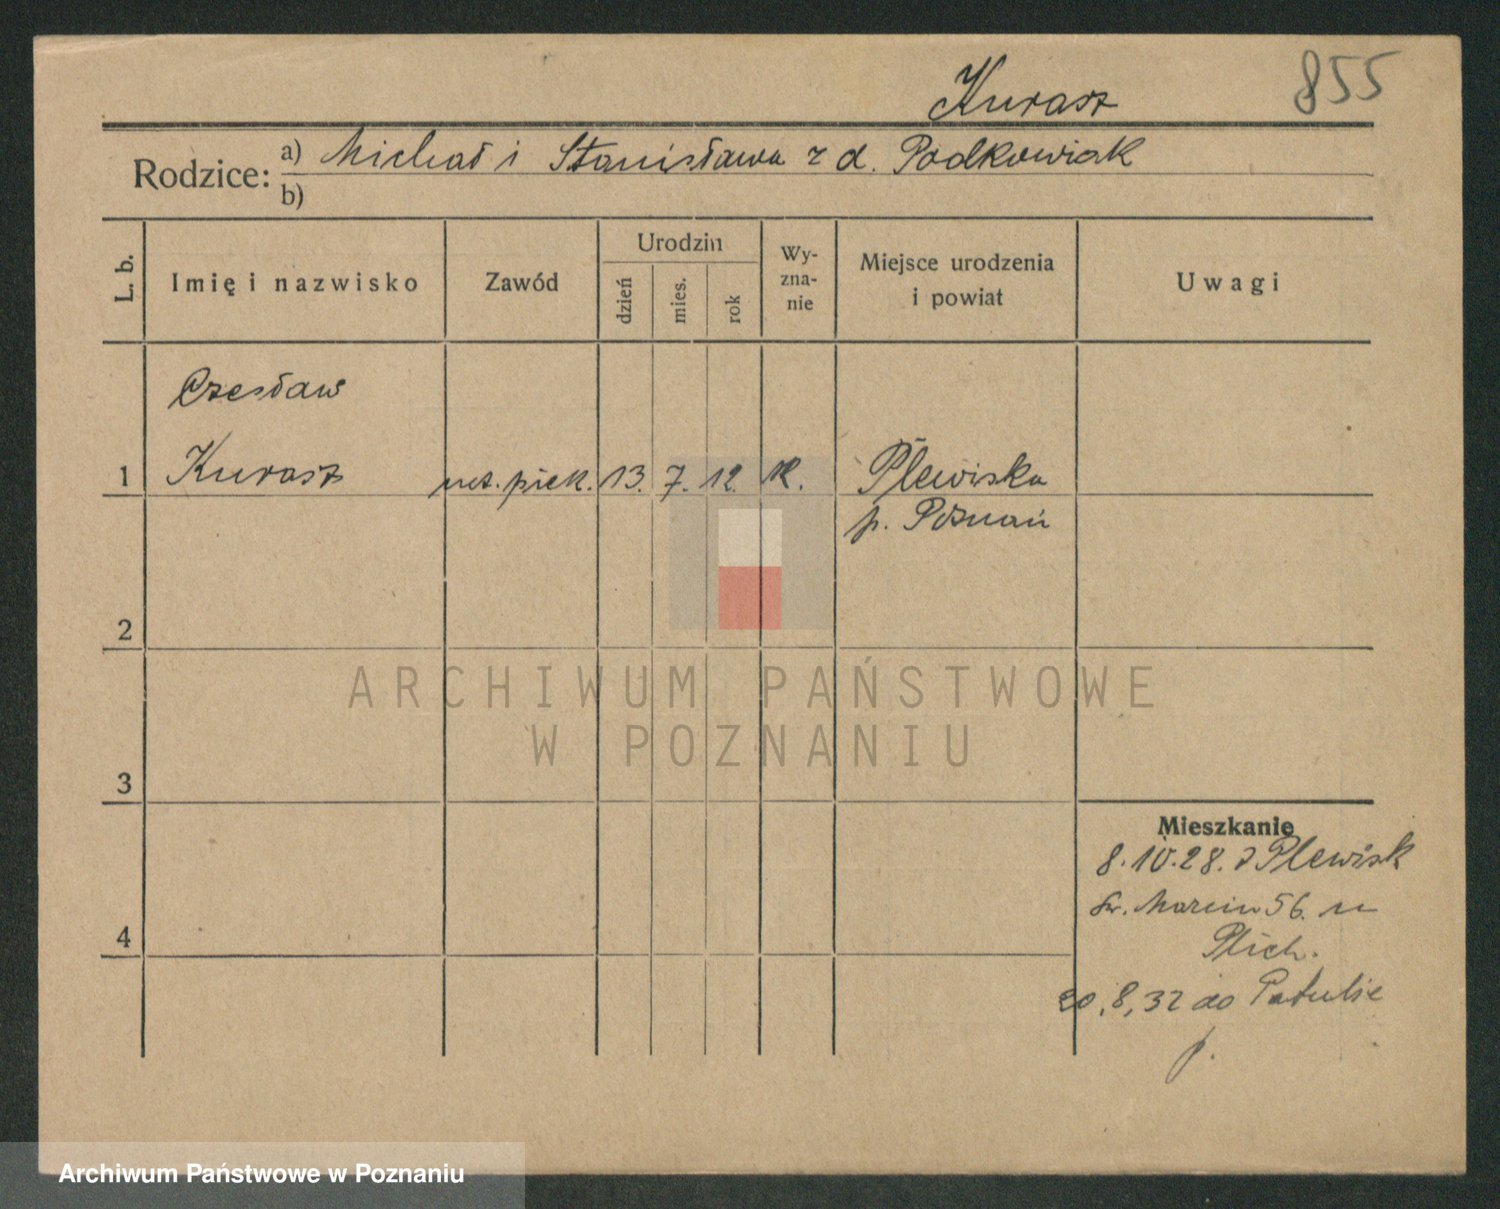 Kurasz 855
Rodzice: a) Michał i Stanisława z d. Podkowiak
b)
L. b.
Imię i nazwisko
Zawód
Urodzin
dzień
mies.
rok
Wy-
zna-
nie
Miejsce urodzenia
i powiat
Uwagi
Czesław
1 Kurasz ucz. piek. 13. 7. 12. K. Plewiska
p. Poznań
2
ARCHIWUM PAŃSTWOWE
W POZNANIU
3
Mieszkanie
8.10.28. z Plewisk
Św. Marcin 56. u
Plich.
4
20,8,32 do Patulic
p.
Archiwum Państwowe w Poznaniu